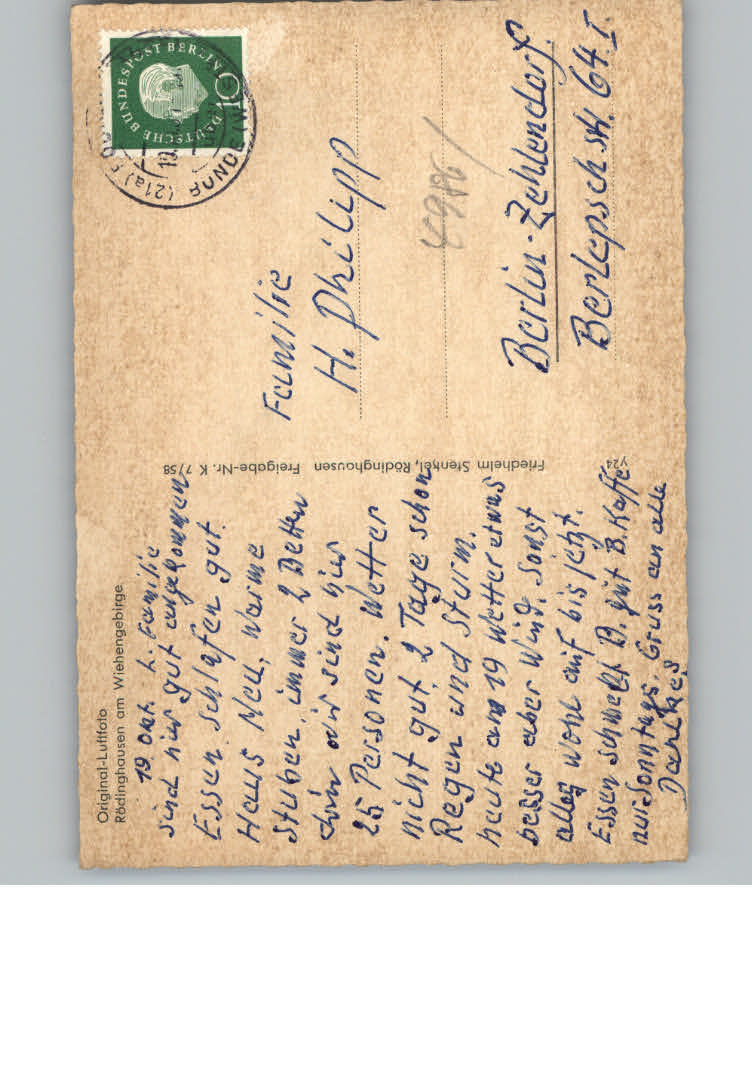 Original-Luftfoto
Rödinghausen am Wiehengebirge
19 Okt. L. Familie
sind hier gut angekommen
Essen schlafen gut.
Haus Neu, Warme
Stuben, immer 2 Betten
drin wir sind hier
25 Personen. Wetter
nicht gut. 2 Tage schon
Regen und Sturm.
heute am 19 Wetter etwas
besser aber Wind. Sonst
alles wohl auf bis jetzt.
Essen schmeckt B. gut B. Kaffe
nur Sonntags. Gruss an alle
Friedhelm Stenkel, Rödinghausen Freigabe-Nr. K 7/58
Y24
DEUTSCHE BUNDESPOST BERLIN
10
(21a)
BÜNDE (W
Familie
H. Philipp
Berlin-Zehlendorf.
Berlepsch str. 64. I.